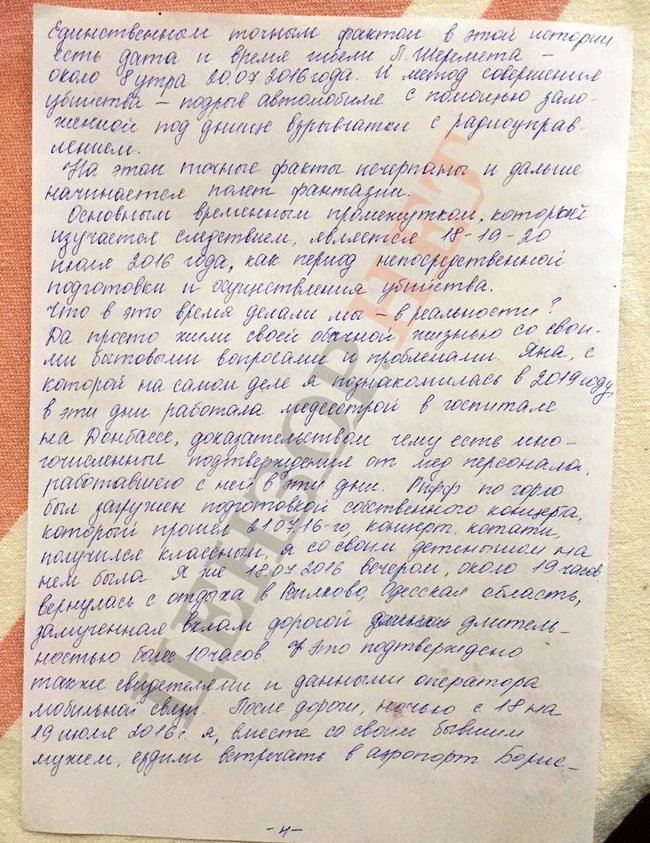 Единственным точным фактом в этой истории
есть дата и время гибели П. Шеремета –
около 8 утра 20.07.2016 года. И метод совершения
убийства – подрыв автомобиля с помощью зало-
женной под днище взрывчатки с радиоуправ-
лением.
На этом точные факты исчерпаны и дальше
начинается полет фантазии.
Основным временным промежутком, который
изучается следствием, является 18-19-20
июля 2016 года, как период непосредственной
подготовки и осуществления убийства.
Что в это время делали мы – в реальности?
Да просто жили своей обычной жизнью со свои-
ми бытовыми вопросами и проблемами. Яна, с
которой на самом деле я познакомилась в 2019 году,
в эти дни работала медсестрой в госпитале
на Донбассе, доказательством чему есть мно-
гочисленные подтверждения от мед персонала,
работавшего с ней в эти дни. Рифф по горло
был загружен подготовкой собственного концерта,
который прошел 21.07.16-го, концерт, кстати,
получился классным, я со своим детенышом на
нем была. Я же 18.07.2016 вечером, около 19 часов
вернулась с отдыха в Вилково, Одесская область,
замученная вхлам дорогой длитель-
ностью более 10 часов. Это подтверждено
также свидетелями и данными оператора
мобильной связи. После дороги, ночью с 18 на
19 июля 2016 г. я, вместе со своим бывшим
мужем, ездили встречать в аэропорт Борис-
-4-
ЦЕНЗОР.НЕТ